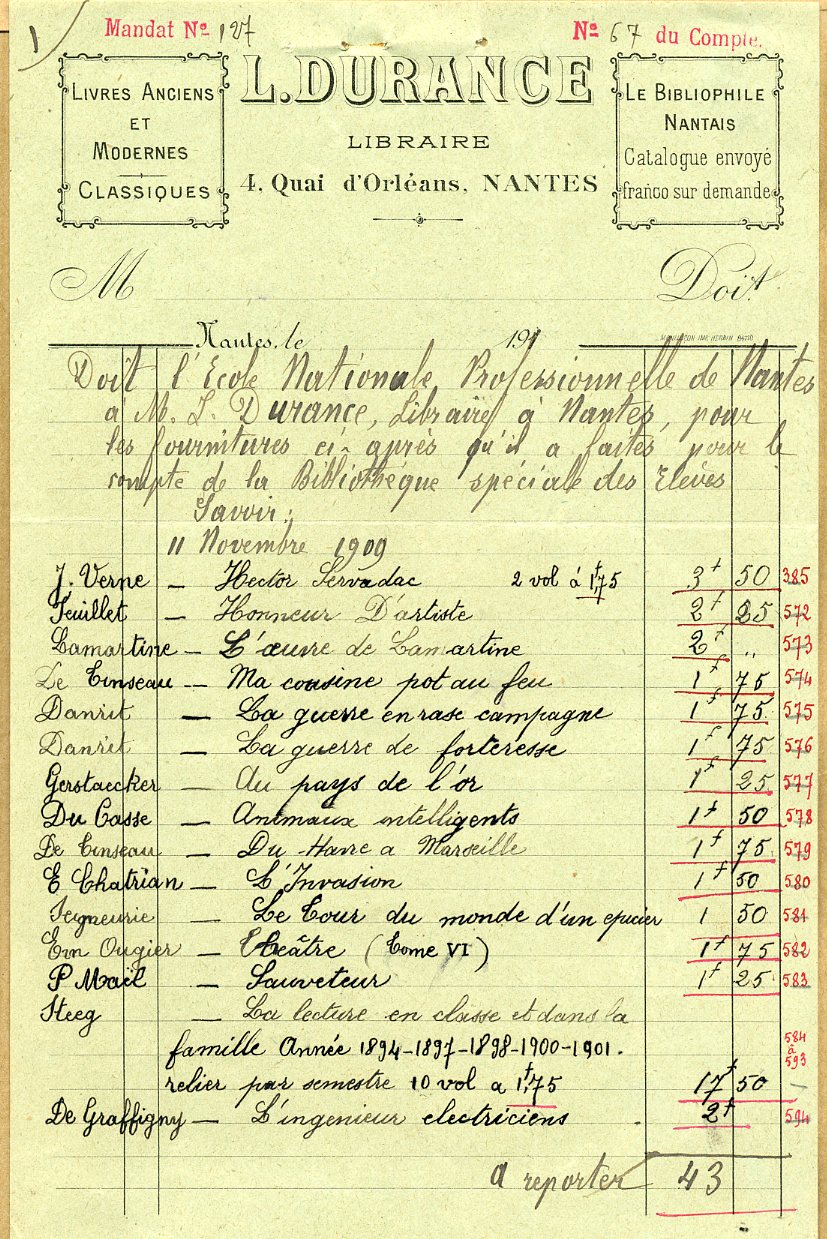 1
Mandat No 127
No 67 du Compte.
LIVRES ANCIENS
ET
MODERNES
CLASSIQUES
L. DURANCE
LIBRAIRE
4, Quai d'Orléans, NANTES
LE BIBLIOPHILE
NANTAIS
Catalogue envoyé
franco sur demande
M Doit
Nantes, le 191
Doit l'Ecole Nationale Professionnelle de Nantes
a M. L. Durance, Libraire à Nantes, pour
les fournitures ci-après qu'il a faites pour le
compte de la Bibliothéque spéciale des Elèves
Savoir:
11 Novembre 1909
J. Verne — Hector Servadac 2 vol à 1f,75 3f 50 385
Feuillet — Honneur D'artiste 2f 25 572
Lamartine — L'œuvre de Lamartine 2f " 573
De Tinseau — Ma cousine pot au feu 1f 75 574
Danrit — La guerre en rase campagne 1f 75 575
Danrit — La guerre de forteresse 1f 75 576
Gerstaecker — Au pays de l'or 1f 25 577
Du Casse — Animaux intelligents 1f 50 578
De Tinseau — Du Havre a Marseille 1f 75 579
E Chatrian — L'Invasion 1f 50 580
Seigneurie — Le Tour du monde d'un epicier 1 50 581
Em Ougier — Theâtre (Tome VI) 1f 75 582
P Maël — Sauveteur 1f 25 583
Steeg — La lecture en classe et dans la
famille Année 1894-1897-1898-1900-1901. 584 à 593
relier par semestre 10 vol a 1f,75 17f 50
De Graffigny — L'ingenieur electriciens 2f 594
a reporter 43